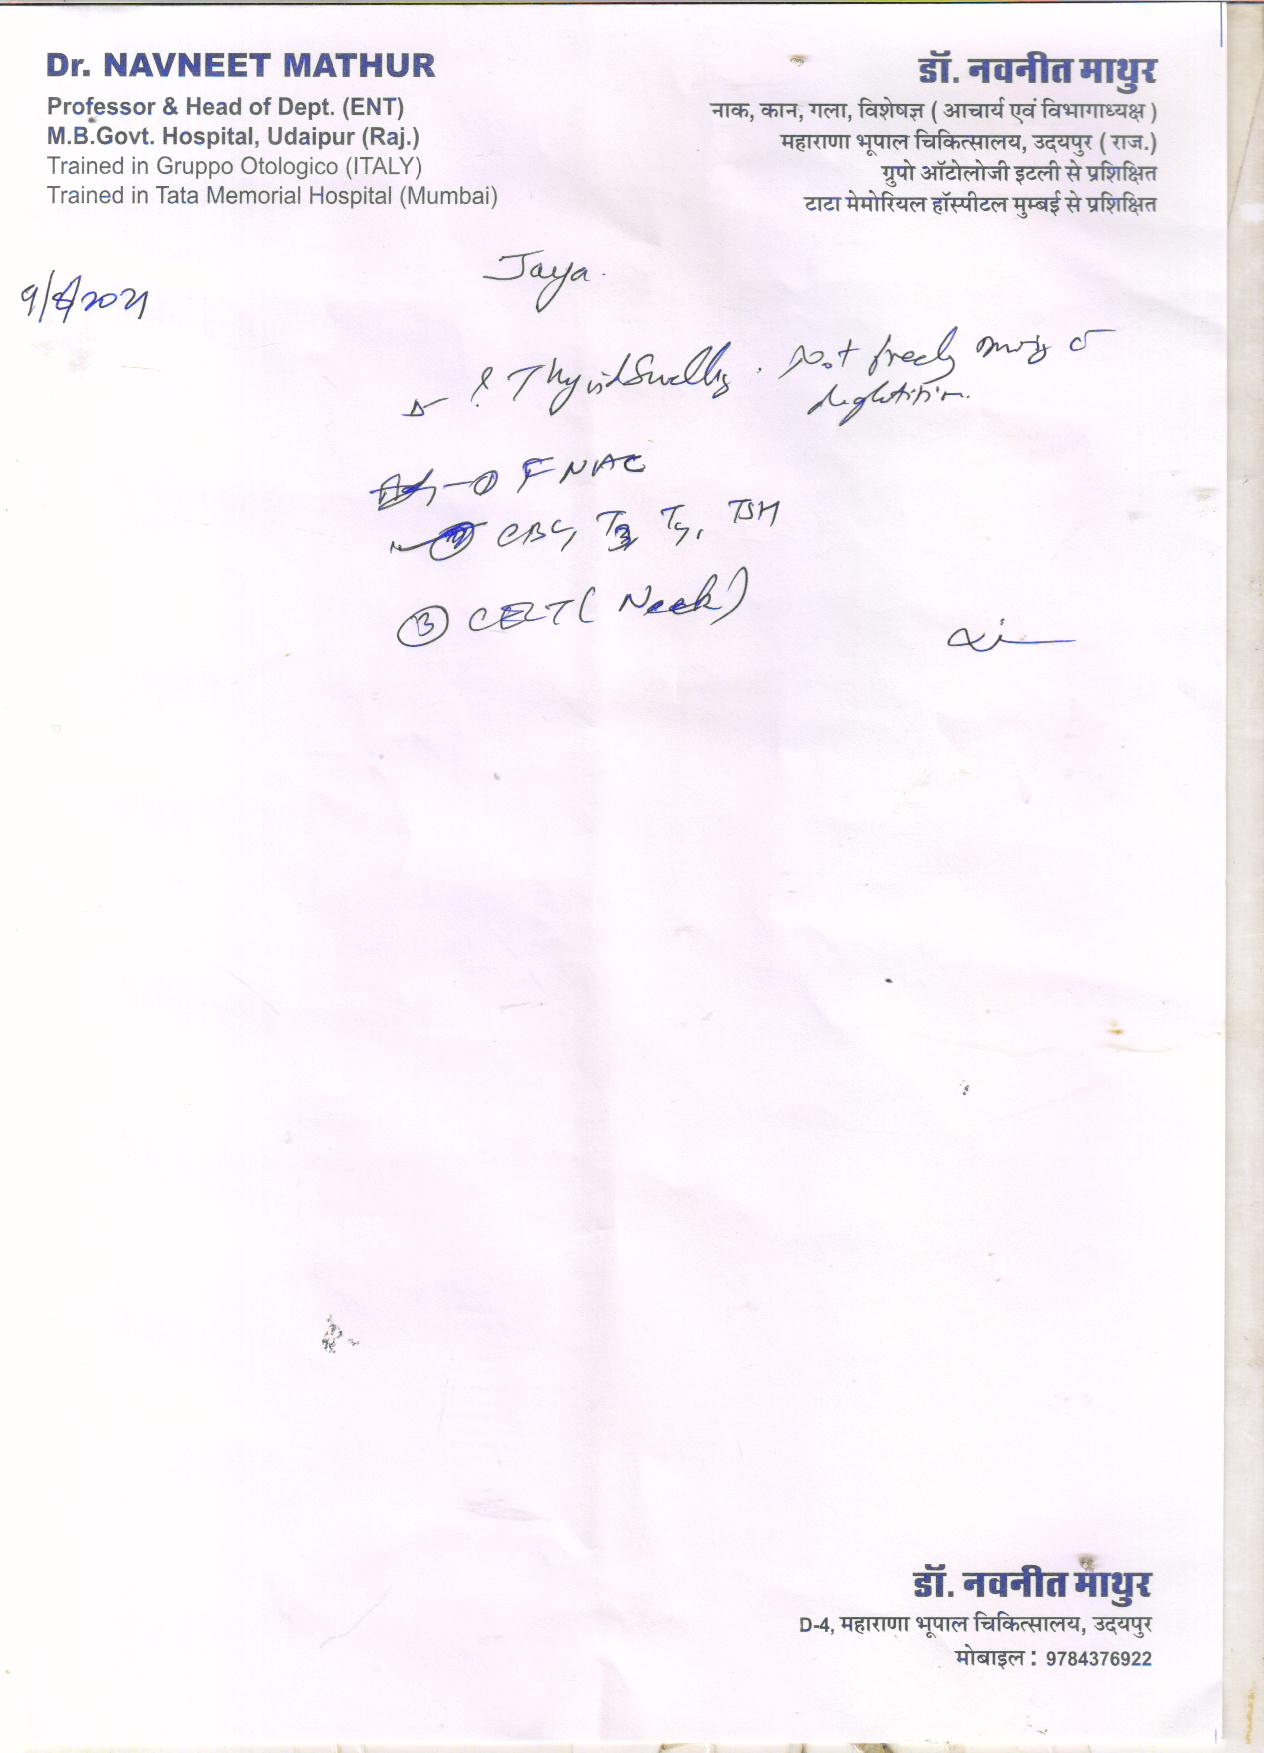 Dr. NAVNEET MATHUR
Professor & Head of Dept. (ENT)
M.B.Govt. Hospital, Udaipur (Raj.)
Trained in Gruppo Otologico (ITALY)
Trained in Tata Memorial Hospital (Mumbai)
डॉ. नवनीत माथुर
नाक, कान, गला, विशेषज्ञ ( आचार्य एवं विभागाध्यक्ष )
महाराणा भूपाल चिकित्सालय, उदयपुर ( राज.)
ग्रुपो ऑटोलोजी इटली से प्रशिक्षित
टाटा मेमोरियल हॉस्पीटल मुम्बई से प्रशिक्षित
Jaya.
9/8/2021
Δ ? Thyroid Swelling . Not freely moving c
deglutition.
① FNAC
② CBC, T3, T4, TSH
③ CECT (Neck)
डॉ. नवनीत माथुर
D-4, महाराणा भूपाल चिकित्सालय, उदयपुर
मोबाइल : 9784376922